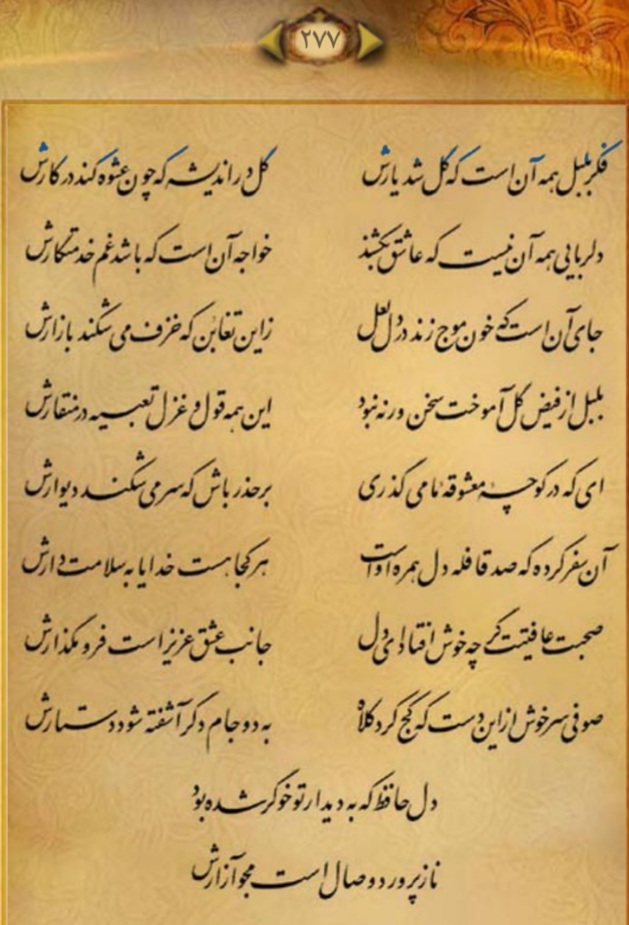 ۲۷۷
فکر بلبل همه آن است که گل شد یارش گل در اندیشه که چون عشوه کند در کارش
دلربایی همه آن نیست که عاشق بکشند خواجه آن است که باشد غم خدمتکارش
جای آن است که خون موج زند در دل لعل زاین تغابن که خزف می شکند بازارش
بلبل از فیض گل آموخت سخن ورنه نبود این همه قول و غزل تعبیه در منقارش
ای که در کوچه معشوقه ما می گذری برحذر باش که سر می شکند دیوارش
آن سفر کرده که صد قافله دل همره اوست هر کجا هست خدایا به سلامت دارش
صحبت عافیتت گر چه خوش افتاد ای دل جانب عشق عزیز است فرو مگذارش
صوفی سرخوش از این دست که کج کرد کلاه به دو جام دگر آشفته شود دستارش
دل حافظ که به دیدار تو خوگر شده بود
نازپرورد وصال است مجو آزارش